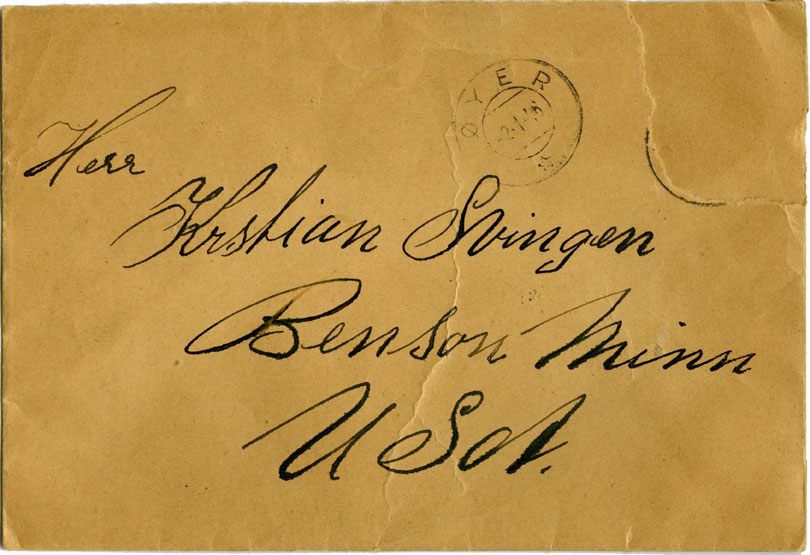 ØYER
Herr
Krstian Svingen
Benson Minn
USA.